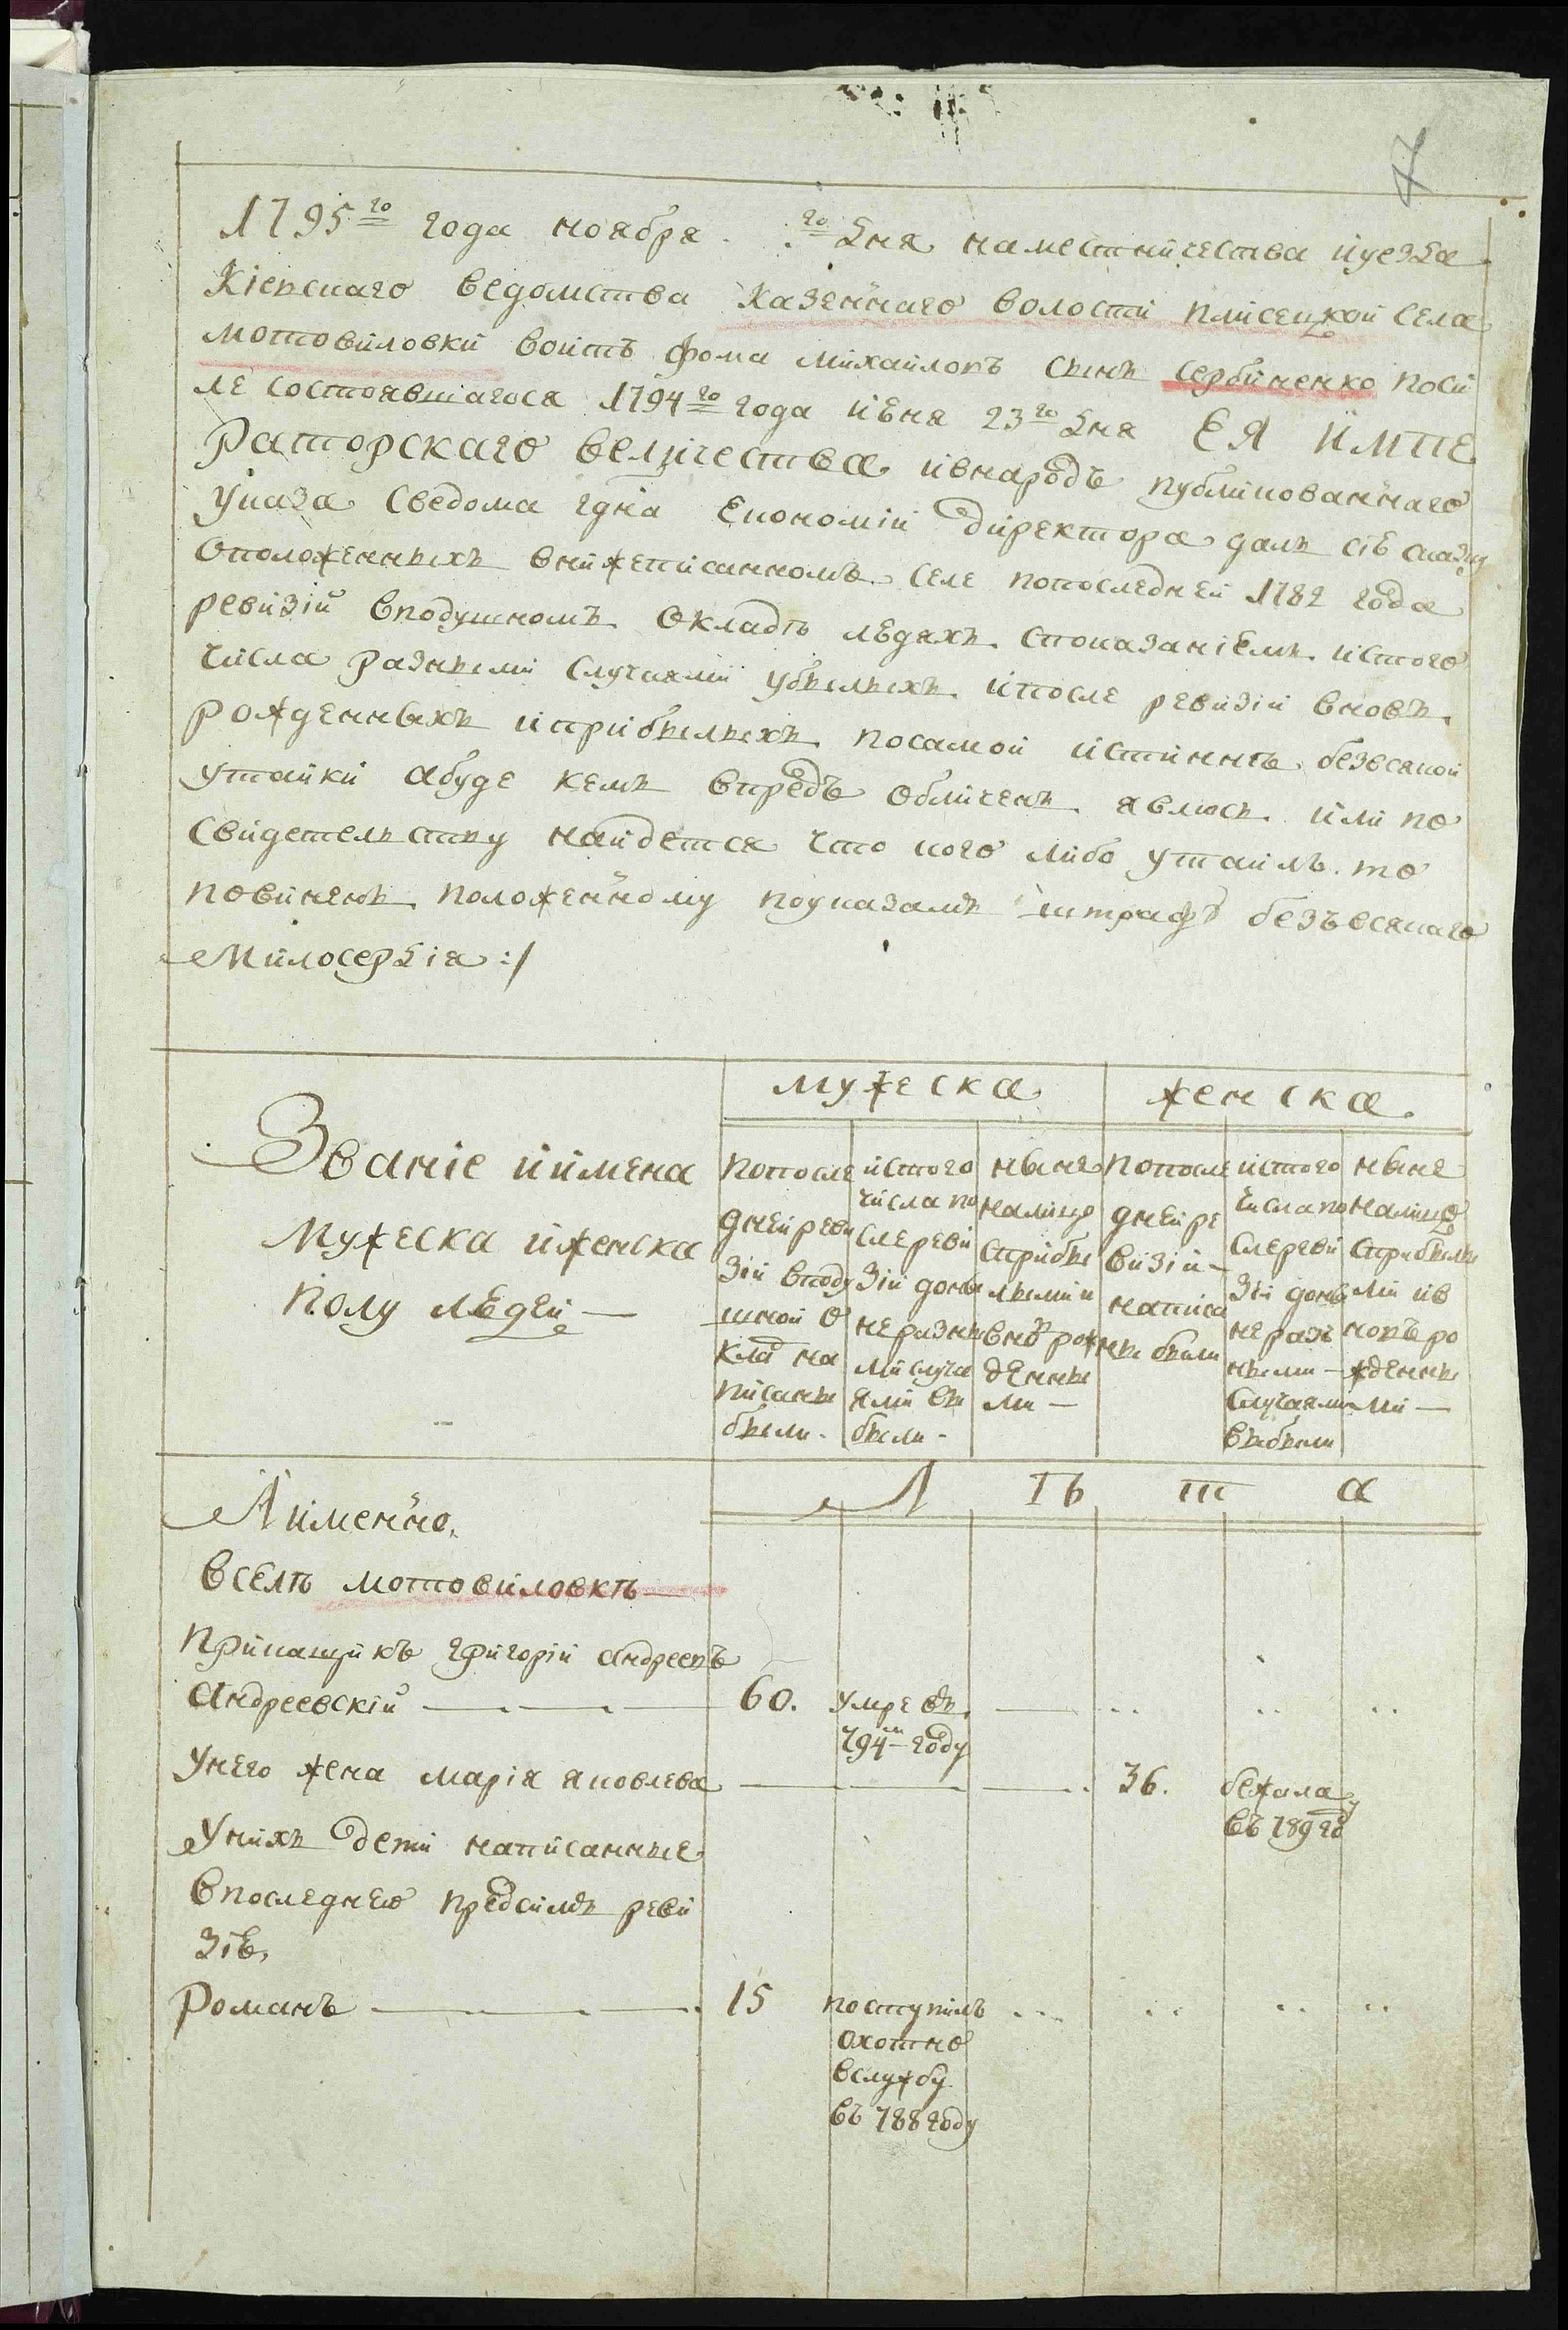 7
1795го года ноября . го дня наместничества иуезда
Кіевскаго ведомства казеннаго волости плисецкой села
мотовиловки воитъ фома михайловъ сынъ сербиненко поси
ле состоявшагося 1794го года июня 23го дня ЕЯ ИМПЕ
Раторскаго величества ивнародъ публикованнаго
указа сведома гдна економіи директора далъ сію сказку
оположенныхъ внижеписанномъ селе попоследней 1782 года
ревизіи вподушномъ окладѣ людяхъ споказаніемъ истого
числа разными случаями убылыхъ ипосле ревизіи вновь
рожденныхъ иприбылыхъ посамой истиннѣ безвсякой
утайки абуде кемъ впредъ обличенъ явлюсь или по
свидетельству найдется что кого либо утаилъ то
повиненъ положенному поуказамъ штрафу безъвсякаго
Милосердія :/
мужеска женска
Званіе иимена
Мужеска иженска
полу людей —
попосле
дней реви
зіи вподу
шной о
кладъ на
писаны
были .
истого
числа по
слереви
зіи доны
не разны
ми случа
ями вы
были .
ныне
налицо
сприбы
лыми и
вновъ рож
денны
ми —
попосле
дней ре
визіи —
написа
ны были
истого
числа по
слереви
зіи доны
не раз
ными —
случаями
выбыли
ныне
налицо
сприбылы
ми ив
новъ ро
жденны
ми —
Л ѣ т а
Аименно.
вселѣ мотовиловкѣ —
Прикащикъ григорій андреевъ
андреевскій — 60. умре въ
794м году
Унего жена марія яковлева — 36. бежала
въ 789 году
Унихъ дети написанные
впоследнею предсимъ реви
зію,
Романъ — 15 поступилъ
охотно
вслужбу
въ 788 году